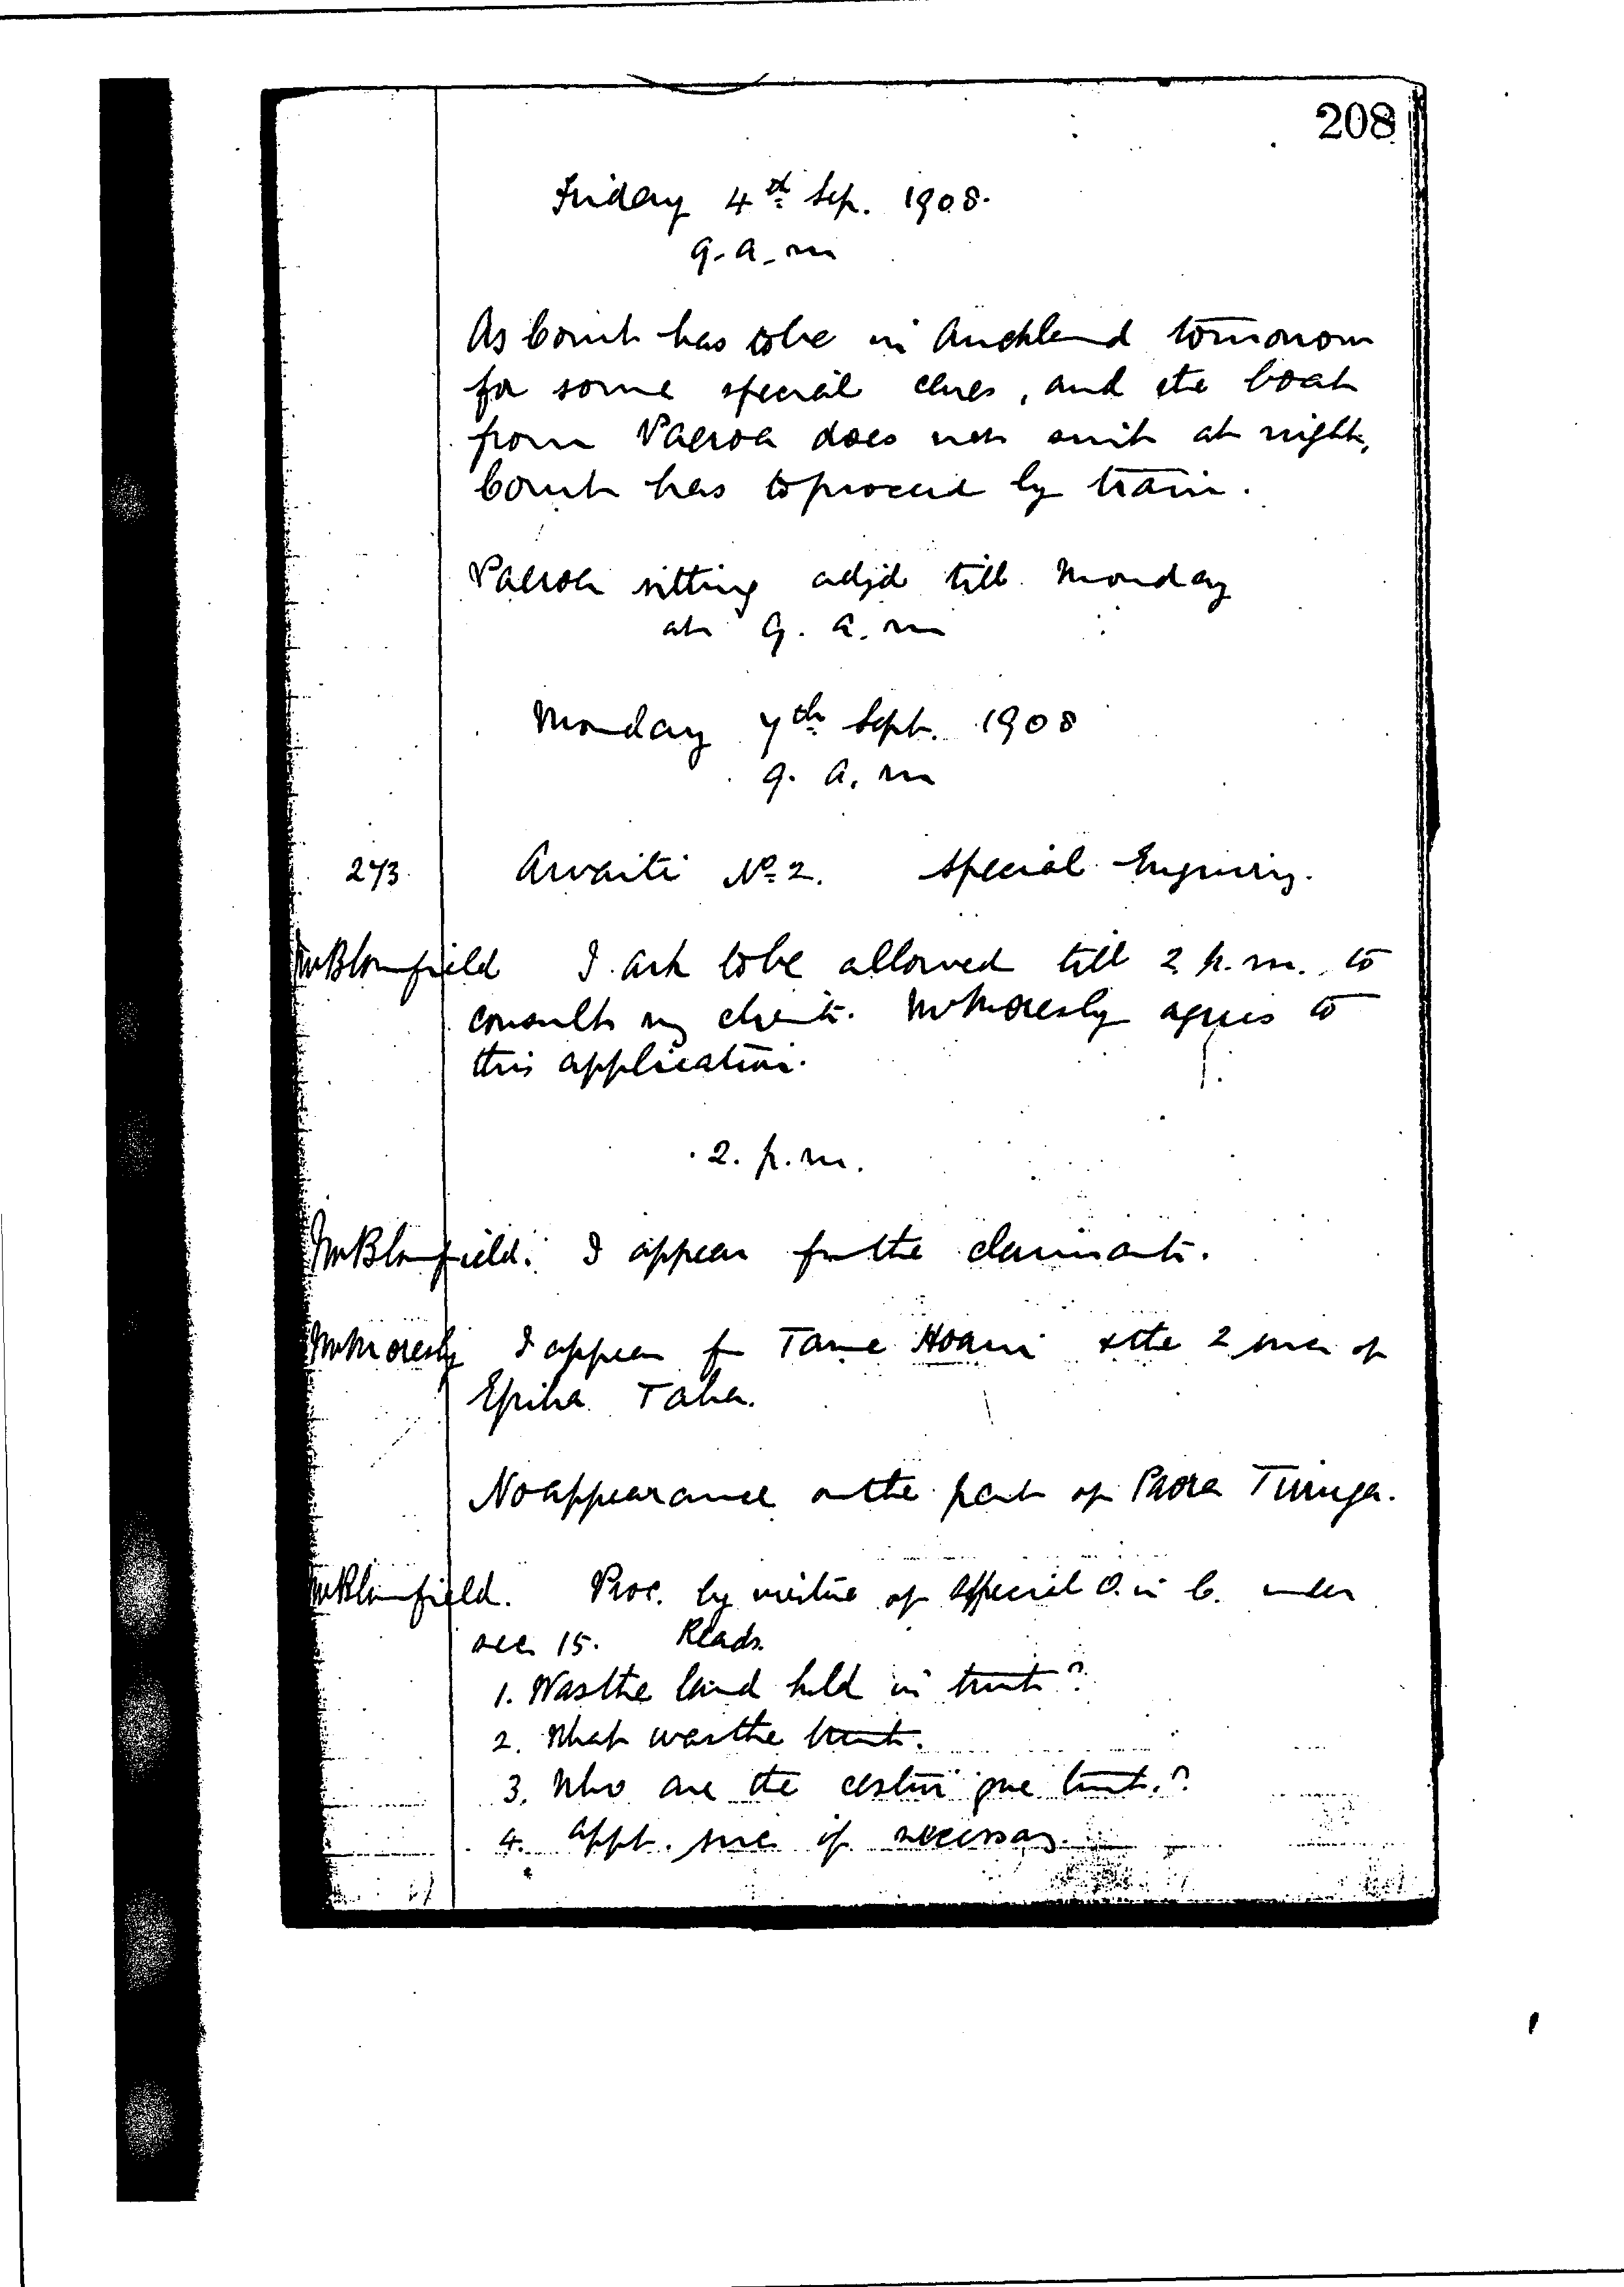 208
Friday 4th Sep. 1908.
9. a. m
As Court has to be in Auckland tomorrow
for some special cases, and the boat
from Paeroa does not suit at night,
Court has to proceed by train.
Paeroa sitting adjd till Monday
at 9. a. m
Monday 7th Sept. 1908
9. a. m
273. Awaiti No 2. Special Enquiry.
Mr Blomfield I ask to be allowed till 2 p.m. to
consult my clients. Mr Moresby agrees to
this application.
2. p.m.
Mr Blomfield. I appear for the claimants.
Mr Moresby I appear for Tame Hoani & the 2 sucs of
Epiha Taha.
No appearance on the part of Paora Tiunga.
Mr Blomfield. Proc. by virtue of special O. in C. under
sec 15. Reads.
1. Was the land held in trust?
2. What was the trust.
3. Who are the cestui que trust.?
4. Appt. sucs if necessary.